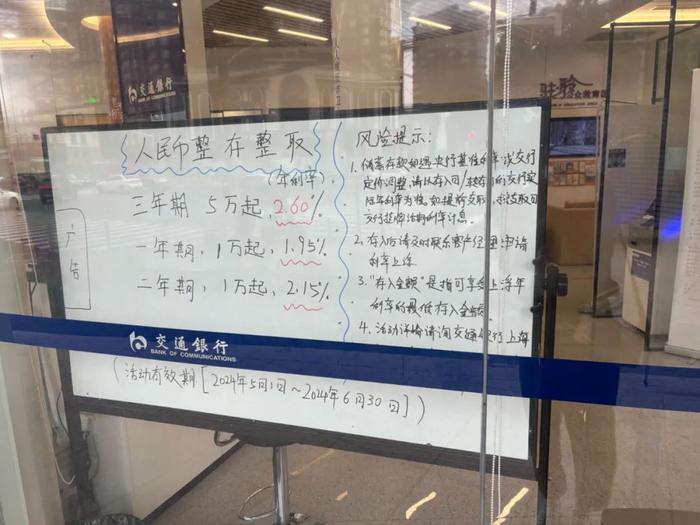 交通銀行
BANK OF COMMUNICATIONS
人民币整存整取
(年利率)
三年期 5万起,2.60%
一年期,1万起,1.95%
二年期,1万起,2.15%
广告
风险提示:
1. 储蓄存款如遇央行基准利率/交行
定价调整,请以存入日/转存日的交行实
际年利率为准。如提前支取,按支取日
交行挂牌活期利率计息。
2. 存入后请及时联系客户经理申请
利率上浮
3. "存入金额"是指可享受上浮年
利率的最低存入金额
4. 活动详情请询交通银行上海
交通銀行
BANK OF COMMUNICATIONS
(活动有效期[2024年5月1日~2024年6月30日])